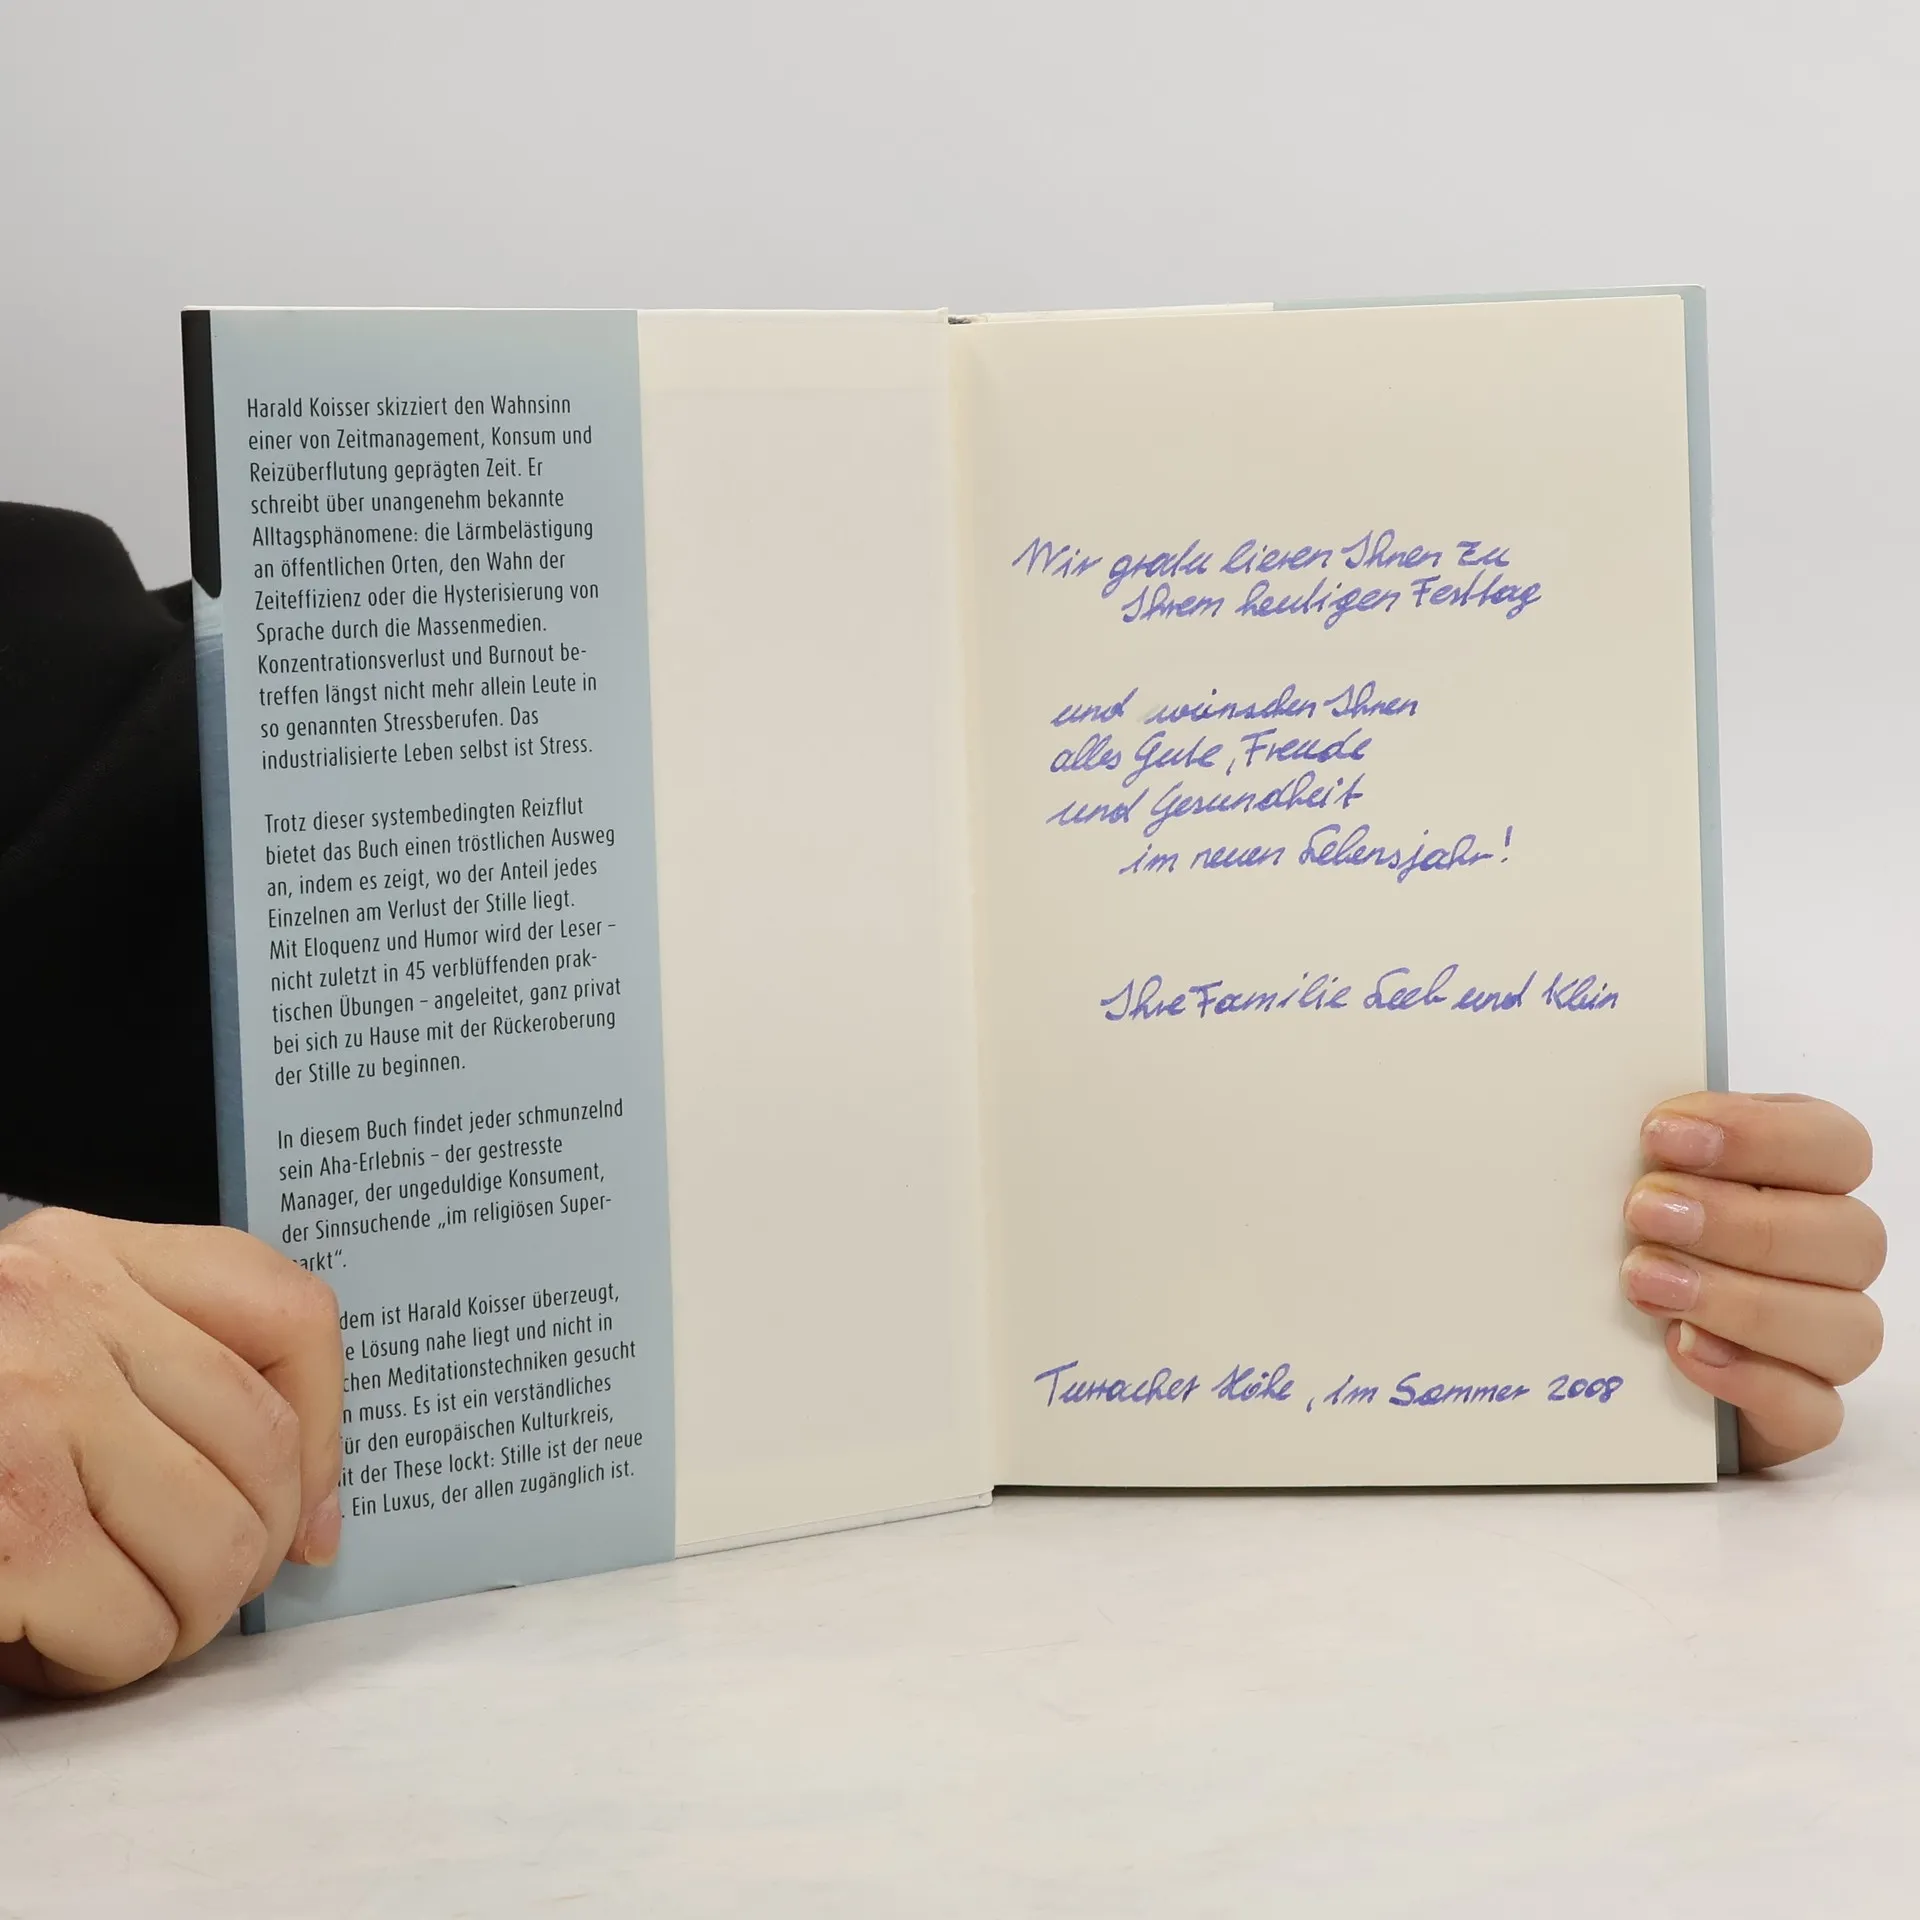 Harald Koisser skizziert den Wahnsinn
einer von Zeitmanagement, Konsum und
Reizüberflutung geprägten Zeit. Er
schreibt über unangenehm bekannte
Alltagsphänomene: die Lärmbelästigung
an öffentlichen Orten, den Wahn der
Zeiteffizienz oder die Hysterisierung von
Sprache durch die Massenmedien.
Konzentrationsverlust und Burnout be-
treffen längst nicht mehr allein Leute in
so genannten Stressberufen. Das
industrialisierte Leben selbst ist Stress.
Trotz dieser systembedingten Reizflut
bietet das Buch einen tröstlichen Ausweg
an, indem es zeigt, wo der Anteil jedes
Einzelnen am Verlust der Stille liegt.
Mit Eloquenz und Humor wird der Leser –
nicht zuletzt in 45 verblüffenden prak-
tischen Übungen – angeleitet, ganz privat
bei sich zu Hause mit der Rückeroberung
der Stille zu beginnen.
In diesem Buch findet jeder schmunzelnd
sein Aha-Erlebnis – der gestresste
Manager, der ungeduldige Konsument,
der Sinnsuchende „im religiösen Super-
arkt“.
dem ist Harald Koisser überzeugt,
e Lösung nahe liegt und nicht in
chen Meditationstechniken gesucht
n muss. Es ist ein verständliches
ür den europäischen Kulturkreis,
it der These lockt: Stille ist der neue
. Ein Luxus, der allen zugänglich ist.
Wir gratulieren Ihnen zu
Ihrem heutigen Festtag
und wünschen Ihnen
alles Gute, Freude
und Gesundheit
im neuen Lebensjahr!
Ihre Familie Leeb und Klein
Turracher Höhe, im Sommer 2008